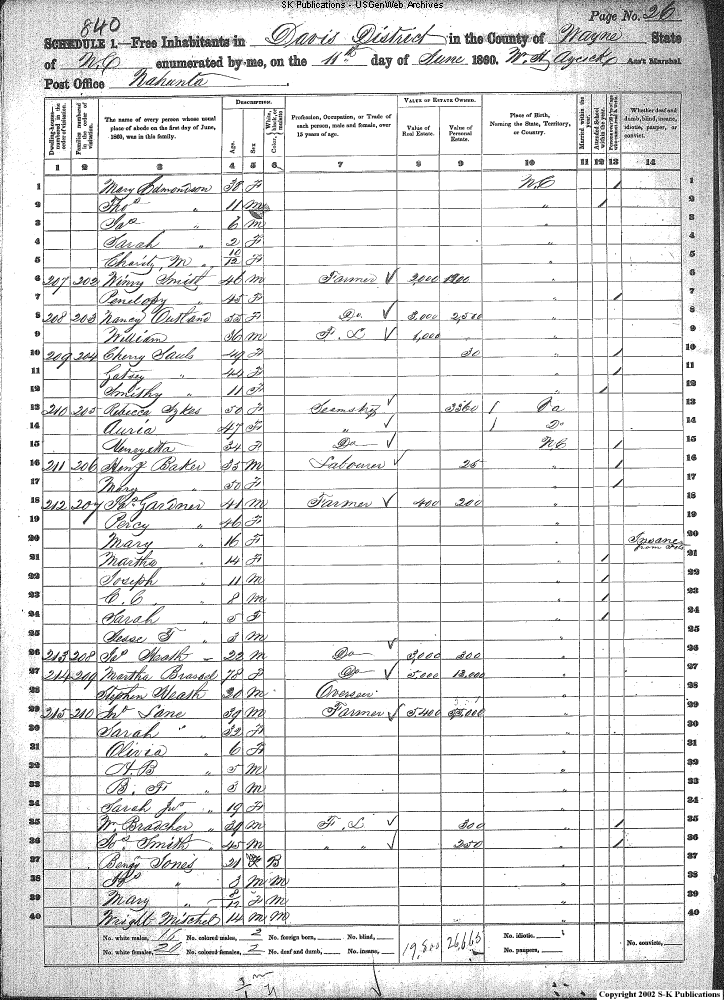 SK Publications - USGenWeb Archives
840
Page No. 26
SCHEDULE 1.—Free Inhabitants in Davis District in the County of Wayne State
of N.C enumerated by me, on the 11th day of June 1860. W. H. Aycock Ass't Marshal
Post Office Nahunta
Dwelling-houses—numbered in the order of visitation.
Families numbered in the order of visitation.
The name of every person whose usual place of abode on the first day of June, 1860, was in this family.
DESCRIPTION.
Age.
Sex.
Color, White, black, or mulatto
Profession, Occupation, or Trade of each person, male and female, over 15 years of age.
VALUE OF ESTATE OWNED.
Value of Real Estate.
Value of Personal Estate.
Place of Birth, Naming the State, Territory, or Country.
Married within the year.
Attended School within the year.
Whether deaf and dumb, blind, insane, idiotic, pauper, or convict.
1 2 3 4 5 6 7 8 9 10 11 12 13 14
1 Mary Edmondson 38 F N.C / 1
2 Thos " 11 M " / 2
3 Jas " 6 M " 3
4 Sarah " 2 F " 4
5 Charity M " 10/12 F " 5
6 207 202 Winny Smith 46 M Farmer 2,000 " 6
7 Penelopy " 45 F " / 7
8 208 203 Nancy Outland 55 F Do. 3,000 2,500 " 8
9 William 36 M F. L 1,000 " 9
10 209 204 Cherry Sauls 49 F 30 " / 10
11 Gatsey " 44 F " / 11
12 Smithy " 11 F " / 12
13 210 205 Rebecca Sykes 50 F Seamstress 3360 / Va 13
14 Auria " 47 F " / Do 14
15 Henryetta " 34 F Do N.C / 15
16 211 206 Henry Baker 35 M Labourer 25 " / 16
17 Mary " 50 F " / 17
18 212 207 Jas Gardner 41 M Farmer 400 200 " 18
19 Percy " 46 F " 19
20 Mary " 16 F " Insane from Fits 20
21 Martha " 14 F " / 21
22 Joseph " 11 M " / 22
23 C. C " 8 M " / 23
24 Sarah " 5 F " / 24
25 Jesse F " 3 M " 25
26 213 208 Jas Heath 22 M Do 3,000 300 " 26
27 214 209 Martha 78 F Do 5,000 12,000 " 27
28 Stephen Heath 20 M Overseer " 28
29 215 210 Jno Lane 39 M Farmer 5,400 " 29
30 Sarah " 32 F " 30
31 Olivia " 6 F " 31
32 A. B " 5 M " 32
33 B. F " 3 M " 33
34 Sarah Jur " 19 F " 34
35 Wm Brascher 39 M F. L 300 " / 35
36 Jos Smith 45 M " " 250 " / 36
37 Bengy Jones 21 F B " 37
38 " 3 M M " 38
39 Mary " 8/12 F M " 39
40 Wright Mitchel 14 M M " 40
No. white males, 16 No. colored males, 2 No. foreign born, No. blind,
No. white females, 20 No. colored females, 2 No. deaf and dumb, No. insane,
19,800 26,665
No. idiotic, 1
No. paupers,
No. convicts,
Copyright 2002 S-K Publications